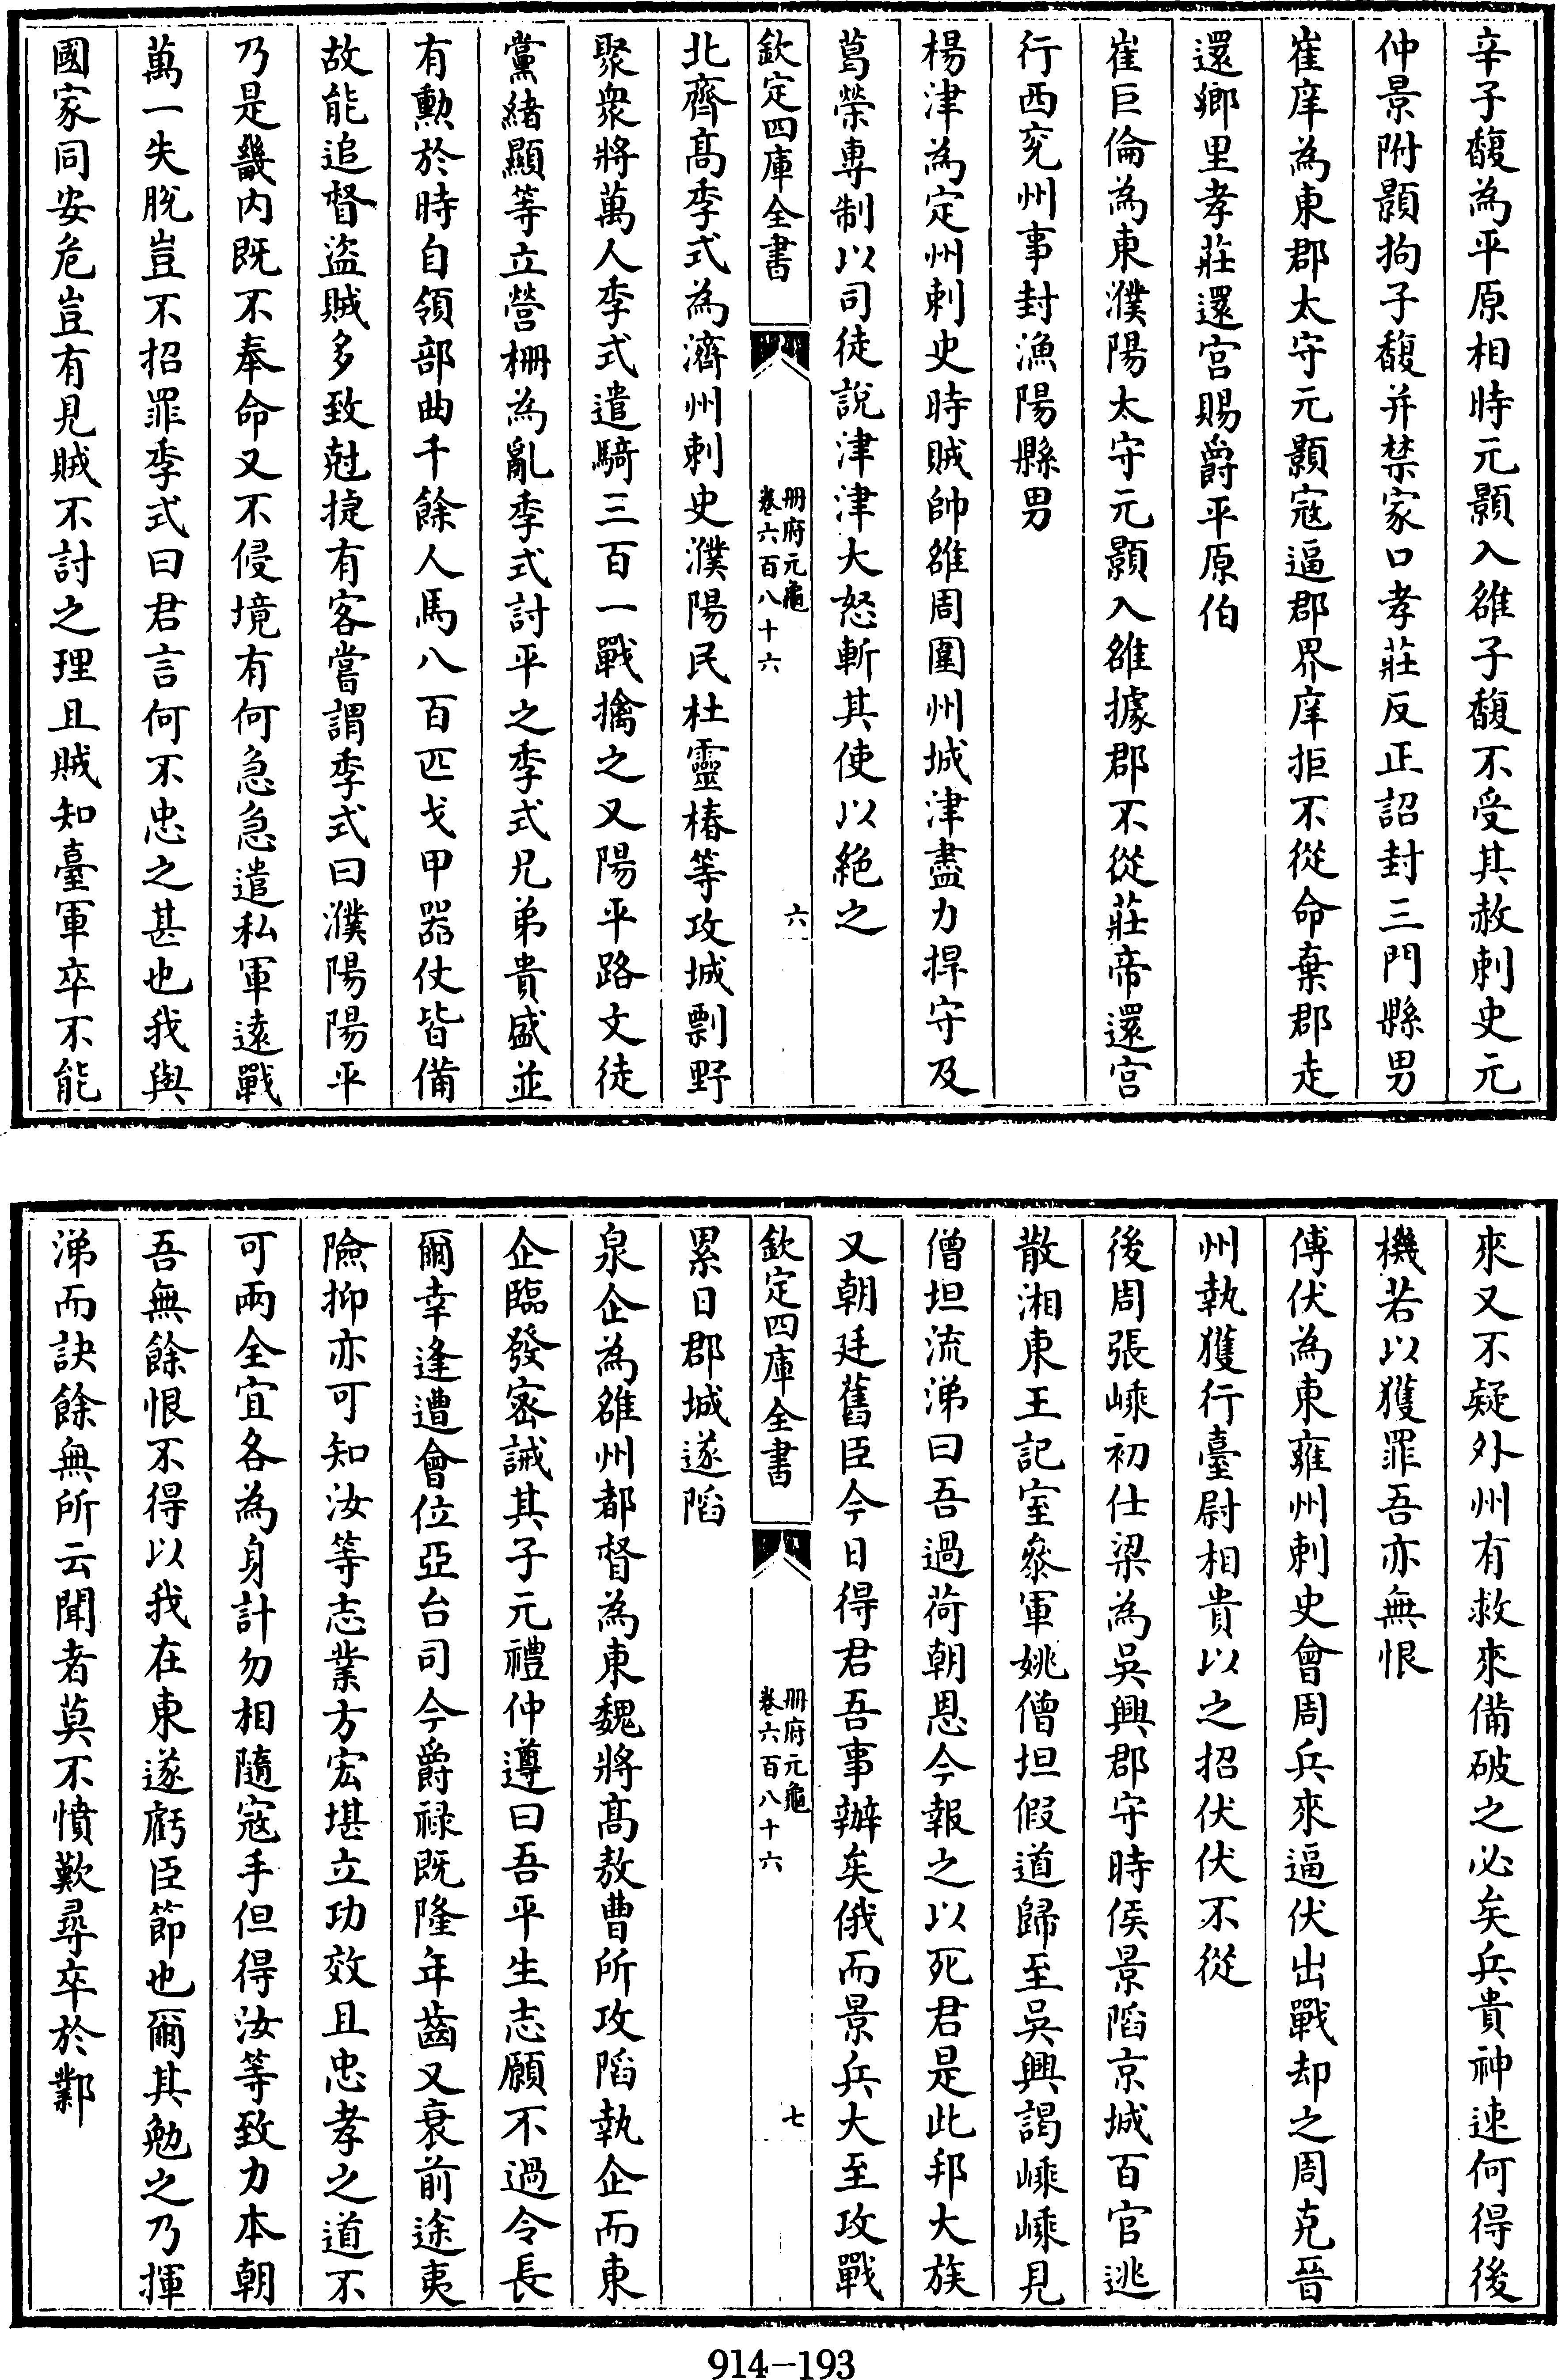 辛子馥為平原相時元顥入雒子馥不受其赦刺史元
仲景附顥拘子馥并禁家口孝莊反正詔封三門縣男
崔庠為東郡太守元顥寇逼郡界庠拒不從命棄郡走
還鄉里孝莊還宫賜爵平原伯
崔巨倫為東濮陽太守元顥入雒據郡不從莊帝還宫
行西兖州事封漁陽縣男
楊津為定州刺史時賊帥雒周圍州城津盡力捍守及
葛榮專制以司徒說津津大怒斬其使以絶之
欽定四庫全書
册府元龜
卷六百八十六
六
北齊高季式為濟州刺史濮陽民杜靈椿等攻城剽野
聚衆將萬人季式遣騎三百一戰擒之又陽平路文徒
黨緒顯等立營柵為亂季式討平之季式兄弟貴盛並
有勲於時自領部曲千餘人馬八百匹戈甲器仗皆備
故能追督盜賊多致尅捷有客嘗謂季式曰濮陽陽平
乃是畿内既不奉命又不侵境有何急急遣私軍遠戰
萬一失脫豈不招罪季式曰君言何不忠之甚也我與
國家同安危豈有見賊不討之理且賊知臺軍卒不能
來又不疑外州有救來備破之必矣兵貴神速何得後
機若以獲罪吾亦無恨
傅伏為東雍州刺史會周兵來逼伏出戰却之周克晉
州執獲行臺尉相貴以之招伏伏不從
後周張嵊初仕梁為吳興郡守時侯景陷京城百官逃
散湘東王記室參軍姚僧坦假道歸至吳興謁嵊嵊見
僧坦流涕曰吾過荷朝恩今報之以死君是此邦大族
又朝廷舊臣今日得君吾事辦矣俄而景兵大至攻戰
欽定四庫全書
册府元龜
卷六百八十六
七
累日郡城遂陷
泉企為雒州都督為東魏將高敖曹所攻陷執企而東
企臨發密誡其子元禮仲遵曰吾平生志願不過令長
爾幸逢遭會位亞台司今爵禄既隆年齒又衰前途夷
險抑亦可知汝等志業方宏堪立功效且忠孝之道不
可兩全宜各為身計勿相隨寇手但得汝等致力本朝
吾無餘恨不得以我在東遂虧臣節也爾其勉之乃揮
涕而訣餘無所云聞者莫不憤歎尋卒於鄴
914-193